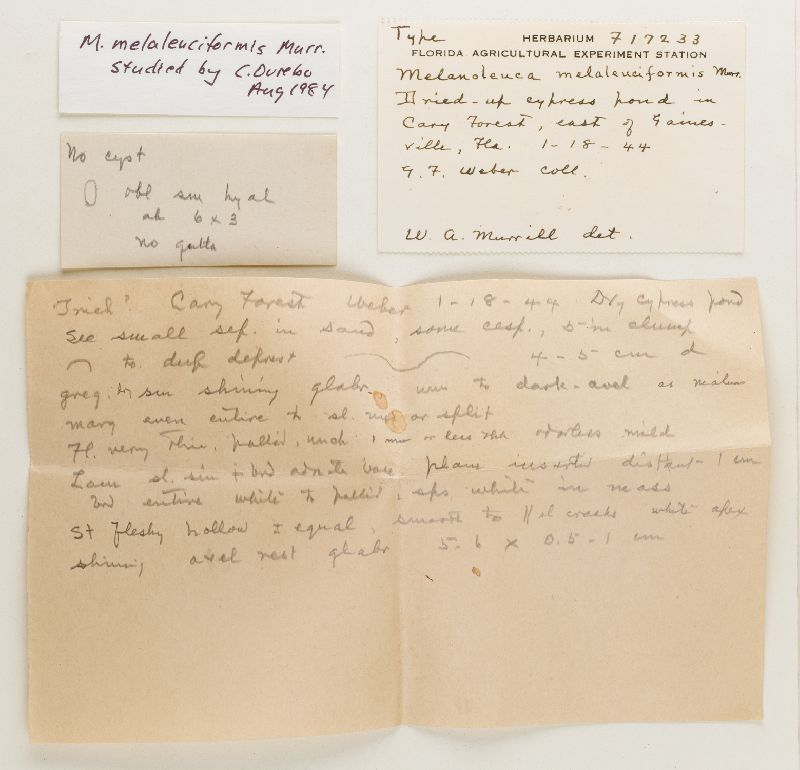 M. melaleuciformis Murr.
studied by C. Ovrebo
Aug 1984
Type HERBARIUM F17233
FLORIDA AGRICULTURAL EXPERIMENT STATION
Melanoleuca melaleuciformis Murr.
Dried-up cypress pond in
Cary Forest, east of Gaines-
ville, Fla. 1-18-44
G. F. Weber coll.
W. A. Murrill det.
No cyst
obl sm hyal
ab 6 x 3
no gutta
"Trich" Cary Forest Weber 1-18-44 Dry cypress pond
See small sep. in sand, some cesp., 5 in clump
to deprest 4-5 cm d
greg. sm shining glabr. to dark-avel
marg even entire to sl. or split
Fl. very thin, pallid, 1 mm or less thk odorless mild
Lam sl. sin plane inserted distant 1 cm
brd entire white to pallid, sps white in mass
St fleshy hollow ± equal, smooth to sl cracks white apex
shining avel rest glabr 5-6 x 0.5-1 cm